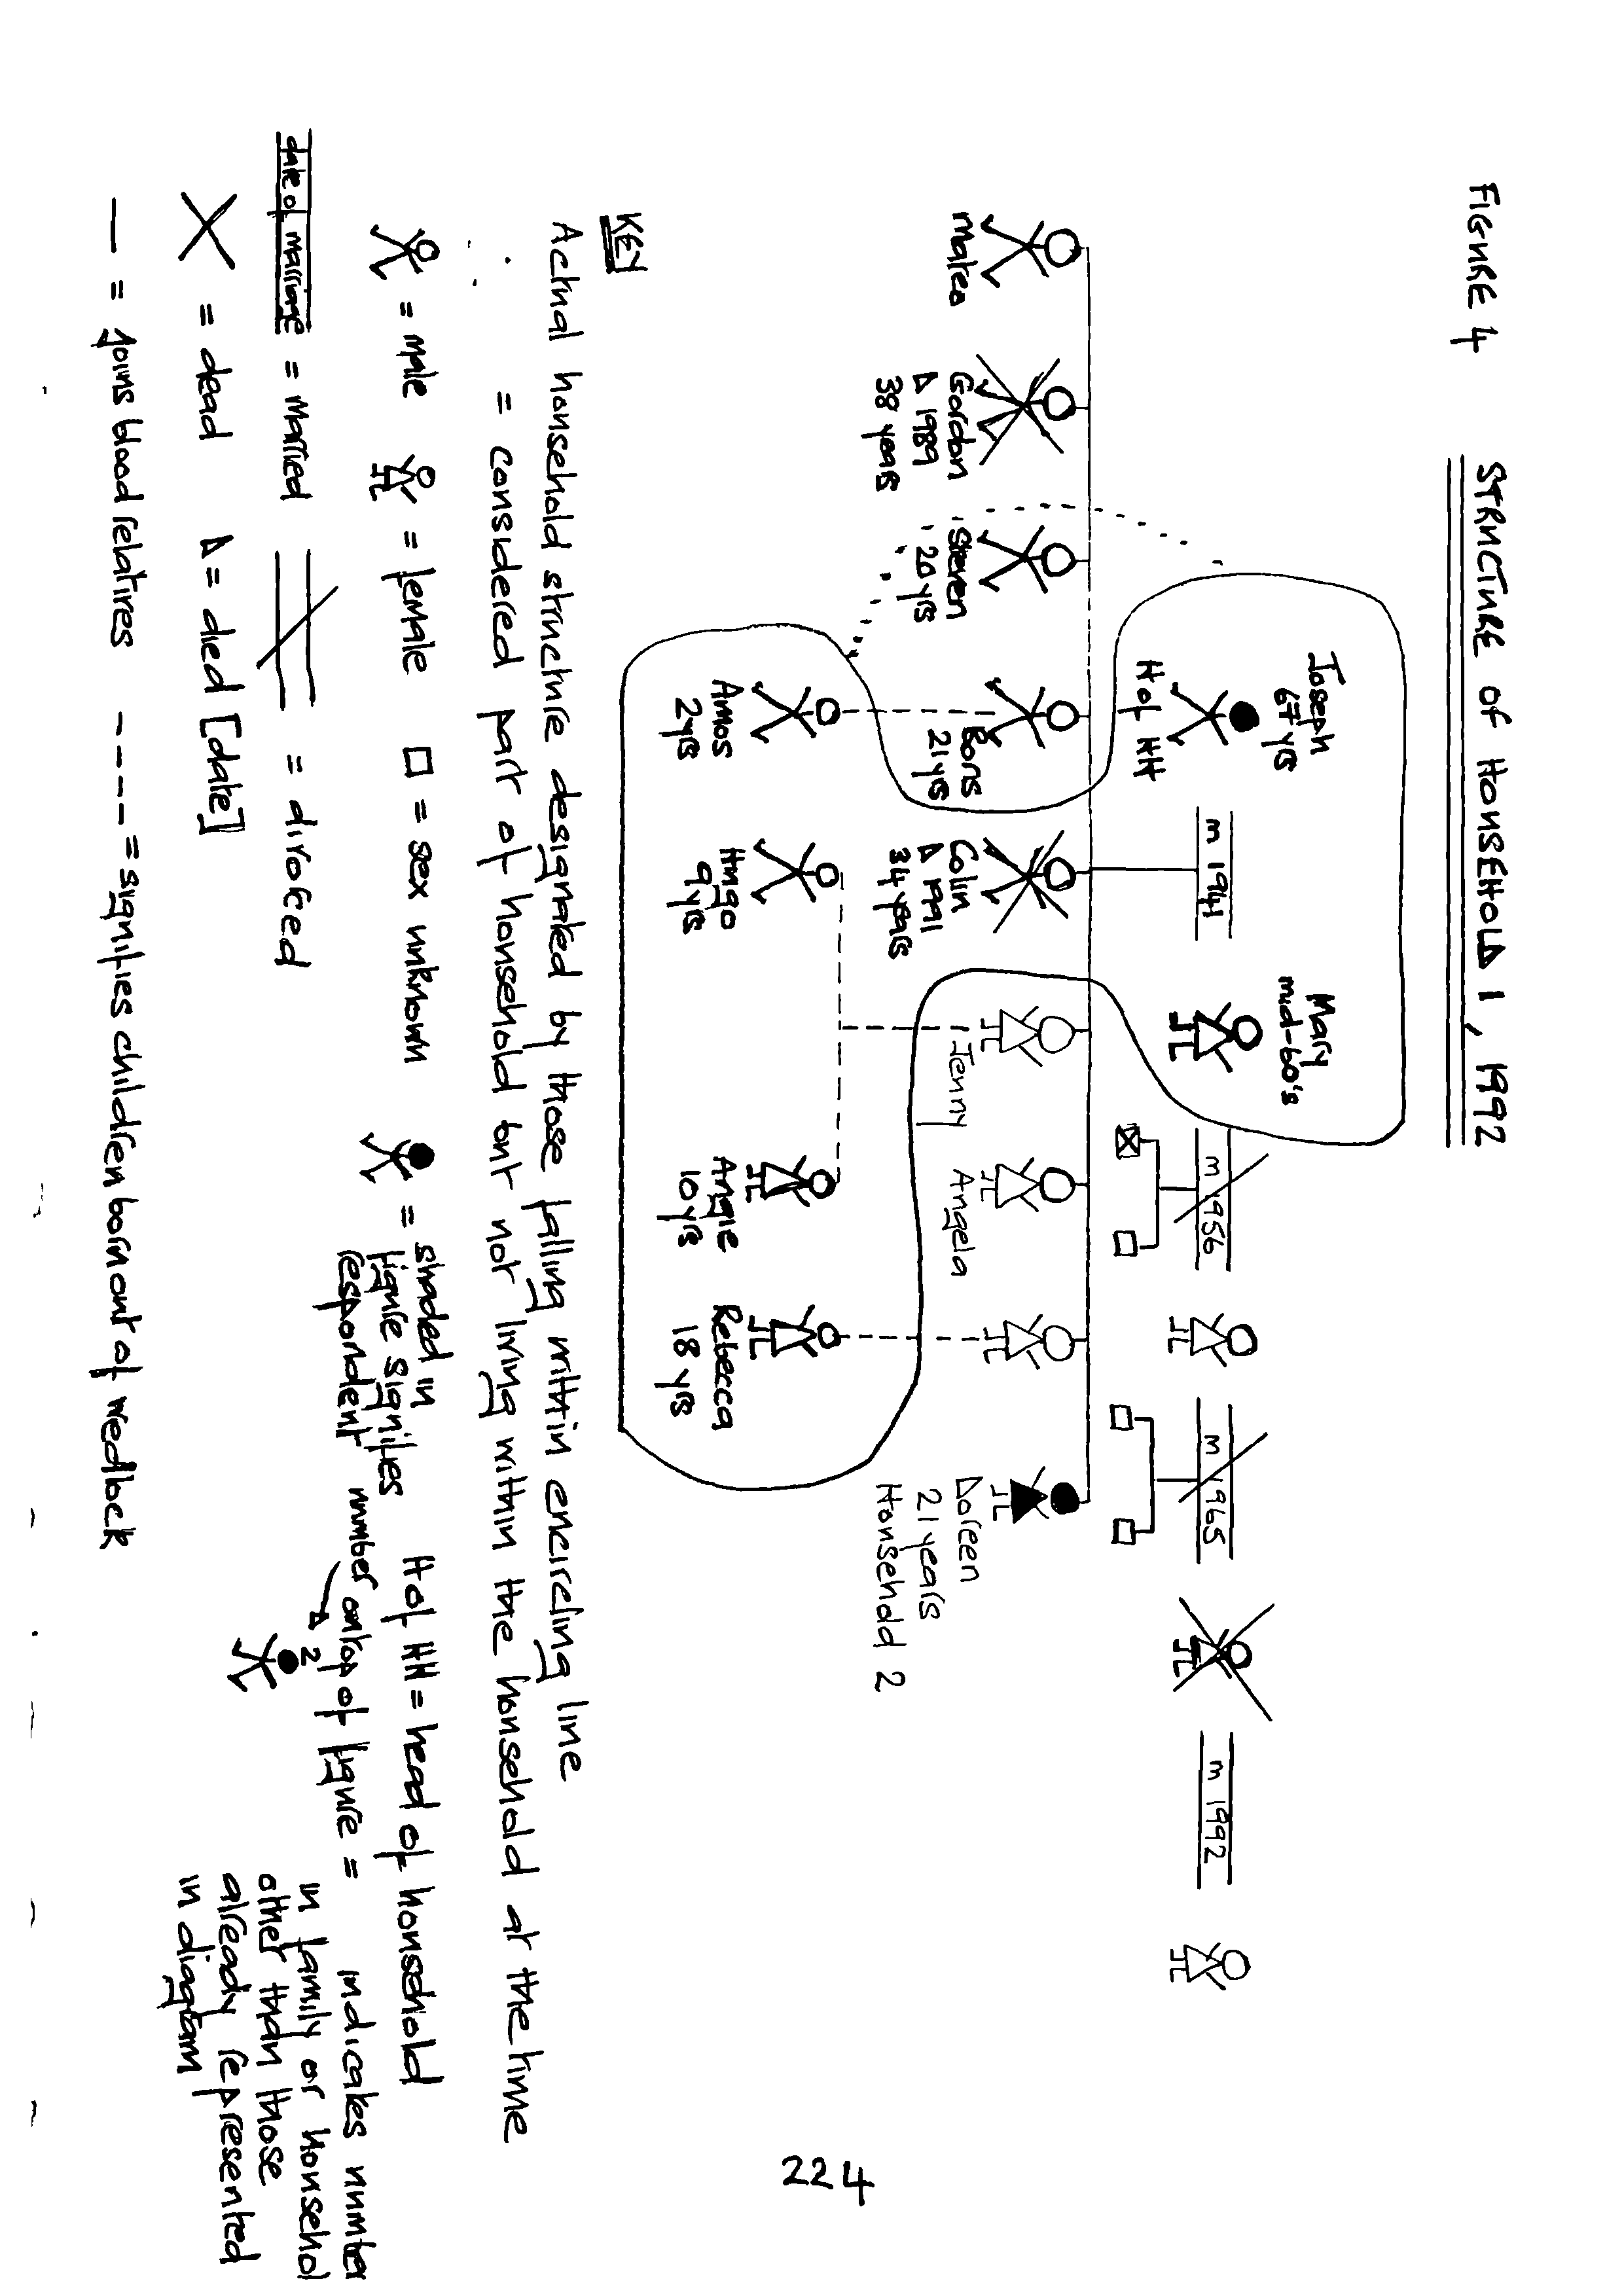 FIGURE 4 STRUCTURE OF HOUSEHOLD 1, 1992
Joseph
67 yrs
Hof HH
m 1941
Mary
mid-60's
m 1956
m 1965
m 1992
Mateo
Gordon
D 1989
38 years
Steven
20 yrs
Boris
21 yrs
Colin
D 1991
34 years
Jenny
Angela
Doreen
21 years
Household 2
Amos
2 yrs
Hugo
9 yrs
Angie
10 yrs
Rebecca
18 yrs
KEY
Actual household structure designated by those falling within encircling line
= considered part of household but not living within the household at the time
= male = female = sex unknown = shaded in figure signifies respondent Hof HH = head of household
date of marriage = married = divorced
number ontop of figure = indicates number in family or househol other than those already represented in diagram
2
= dead D = died [date]
— = joins blood relatives ---- = signifies children born out of wedlock
224